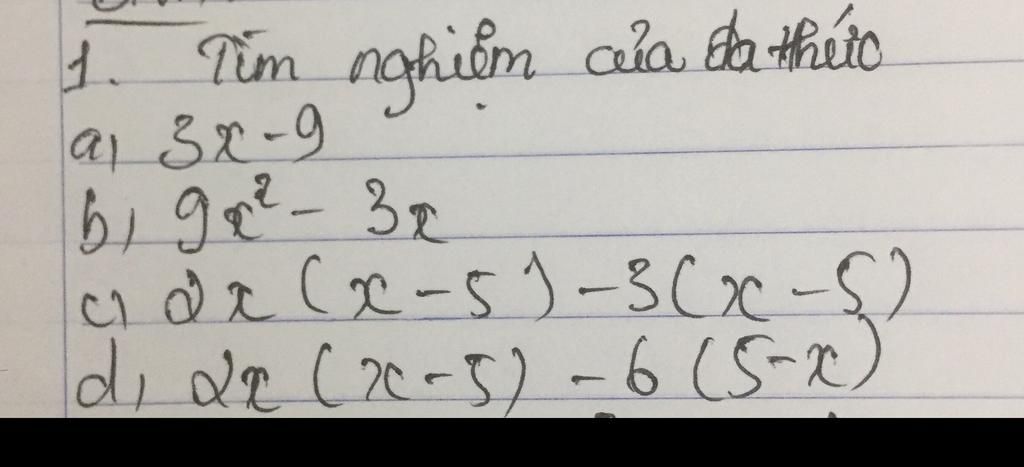 1. Tìm nghiệm của đa thức
a, 3x - 9
b, 9x² - 3x
c, 2x (x - 5) - 3(x - 5)
d, 2x (x - 5) - 6 (5 - x)